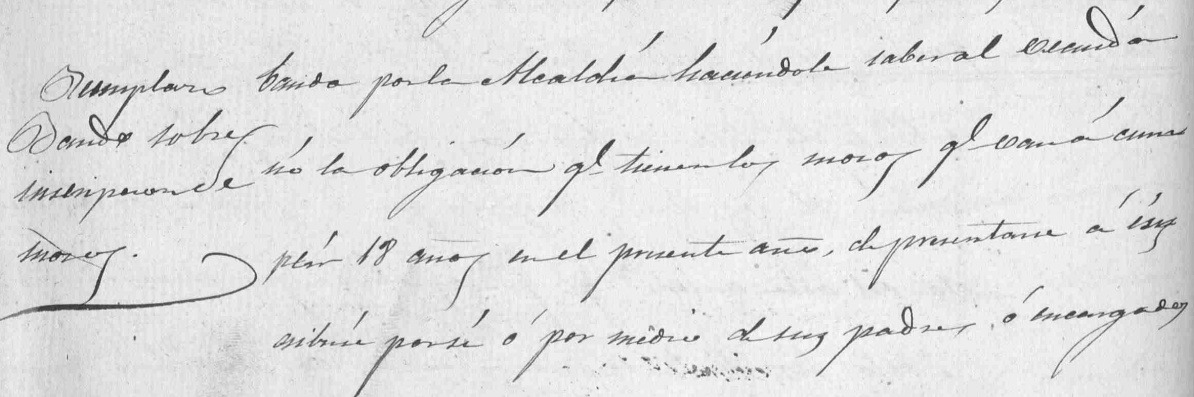 Reemplazos
Bando sobre
inscripcion de
mozos.
bando por la Alcaldía haciéndole saber al vecinda
rio la obligación qe. tienen los mozos qe. van á cum
plir 18 años en el presente año, de presentarse á ins
cribirse por sí ó por médio de sus padres, ó encargados